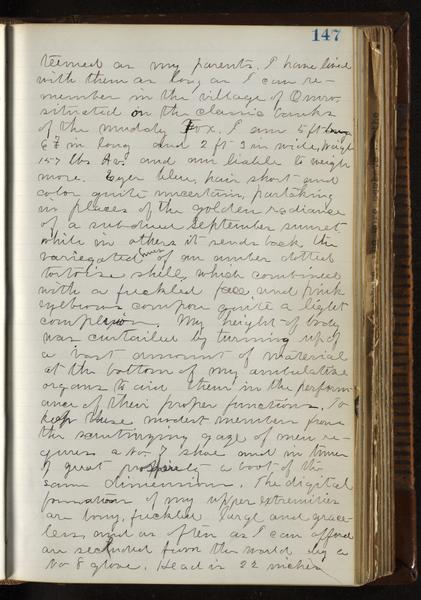 147
teemed as my parents. I have lived
with them as long as I can re-
member in the village of Omro,
situated on the classic banks
of the muddy Fox. I am 5 ft
6 7/8 in long and 2 ft 3 in wide, weigh
157 lbs Av. and am liable to weigh
more. Eyes blue, hair short and
color quite uncertain, partaking
in places of the golden radiance
of a subdued September sunset
while in others it sends back the
variegated hues of an amber dotted
tortoise shell, which combined
with a freckled face and pink
eyebrows compose quite a light
complexion. My height of body
was curtailed by turning up of
a vast amount of material
at the bottom of my ambulatise
organs to aid them in the perform-
ance of their proper functions. To
keep these modest members from
the scrutinizing gaze of men re-
quires a No. 7 shoe and in times
of great prosperity a boot of the
same dimensions. The digital
formation of my upper extremities
are bony, freckled large and grace-
less, and as often as I can afford
are secluded from the world by a
No 8 glove. Head is 22 inches